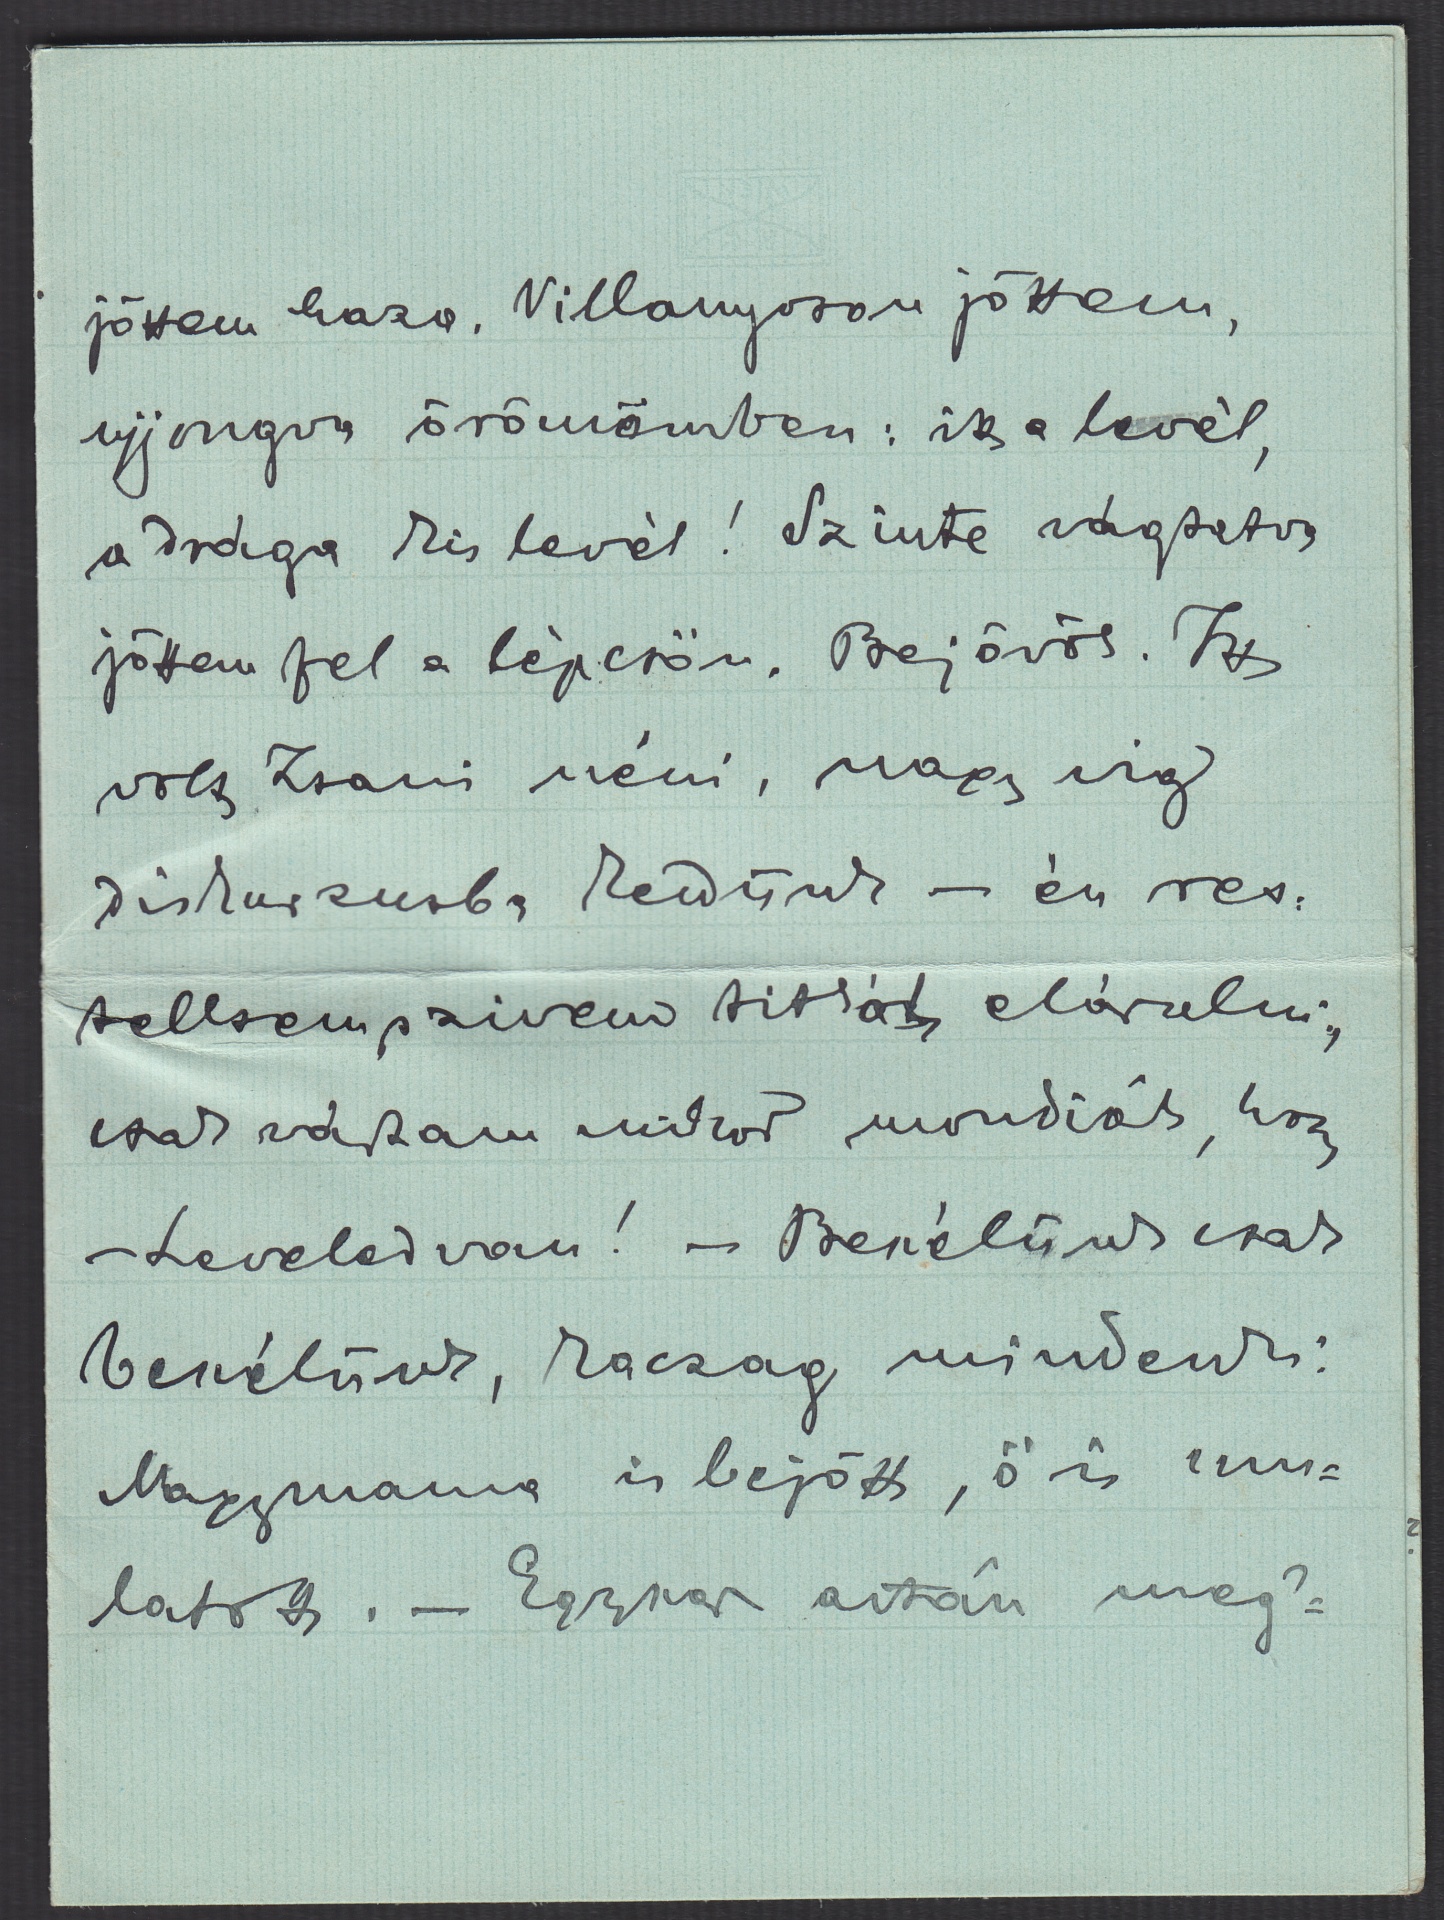 jöttem haza. Villanyoson jöttem,
ujjongva örömömben: itt a levél,
a drága kis levél! Szinte vágtatva
jöttem fel a lépcsőn. Bejövök. Itt
volt Zsani néni, nagy vig
diskurzusba kezdünk – én res:
telltem szivem titkát elárulni,
csak vártam mikor mondják, hogy
– Leveled van! – Beszélünk csak
beszélünk, kaczag mindenki:
Nagymama is bejött, ő is mu=
latott. – Egyszer aztán meg=